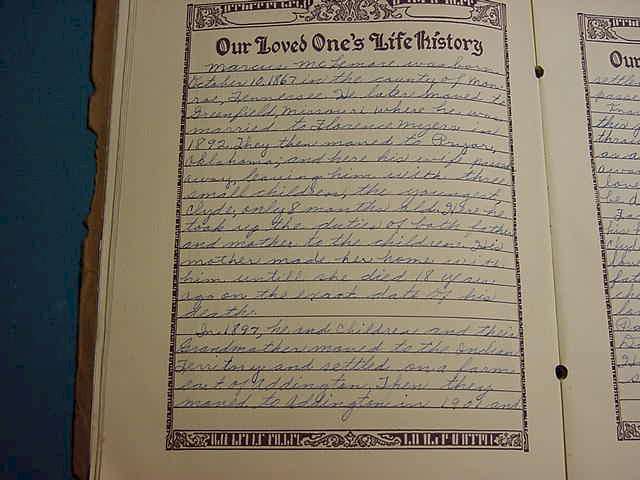 Our Loved One's Life History
Marcus McLemore was born
October 10, 1867 in the county of Mon-
roe, Tennessee. He later moved to
Greenfield, Missouri where he was
married to Florence Meyers in
1892. They then moved to Pryor,
Oklahoma, and here his wife passed
away, leaving him with three
small children, the youngest,
Clyde, only 8 months old. Here he
took up the duties of both father
and mother to the children. His
mother made her home with
him untill she died 18 years
ago on the exact date of his
death.
In 1897, he and children and their
Grandmother moved to the Indian
Territory and settled on a farm
east of Addington. Then they
moved to Addington in 1901 and
Our
settled